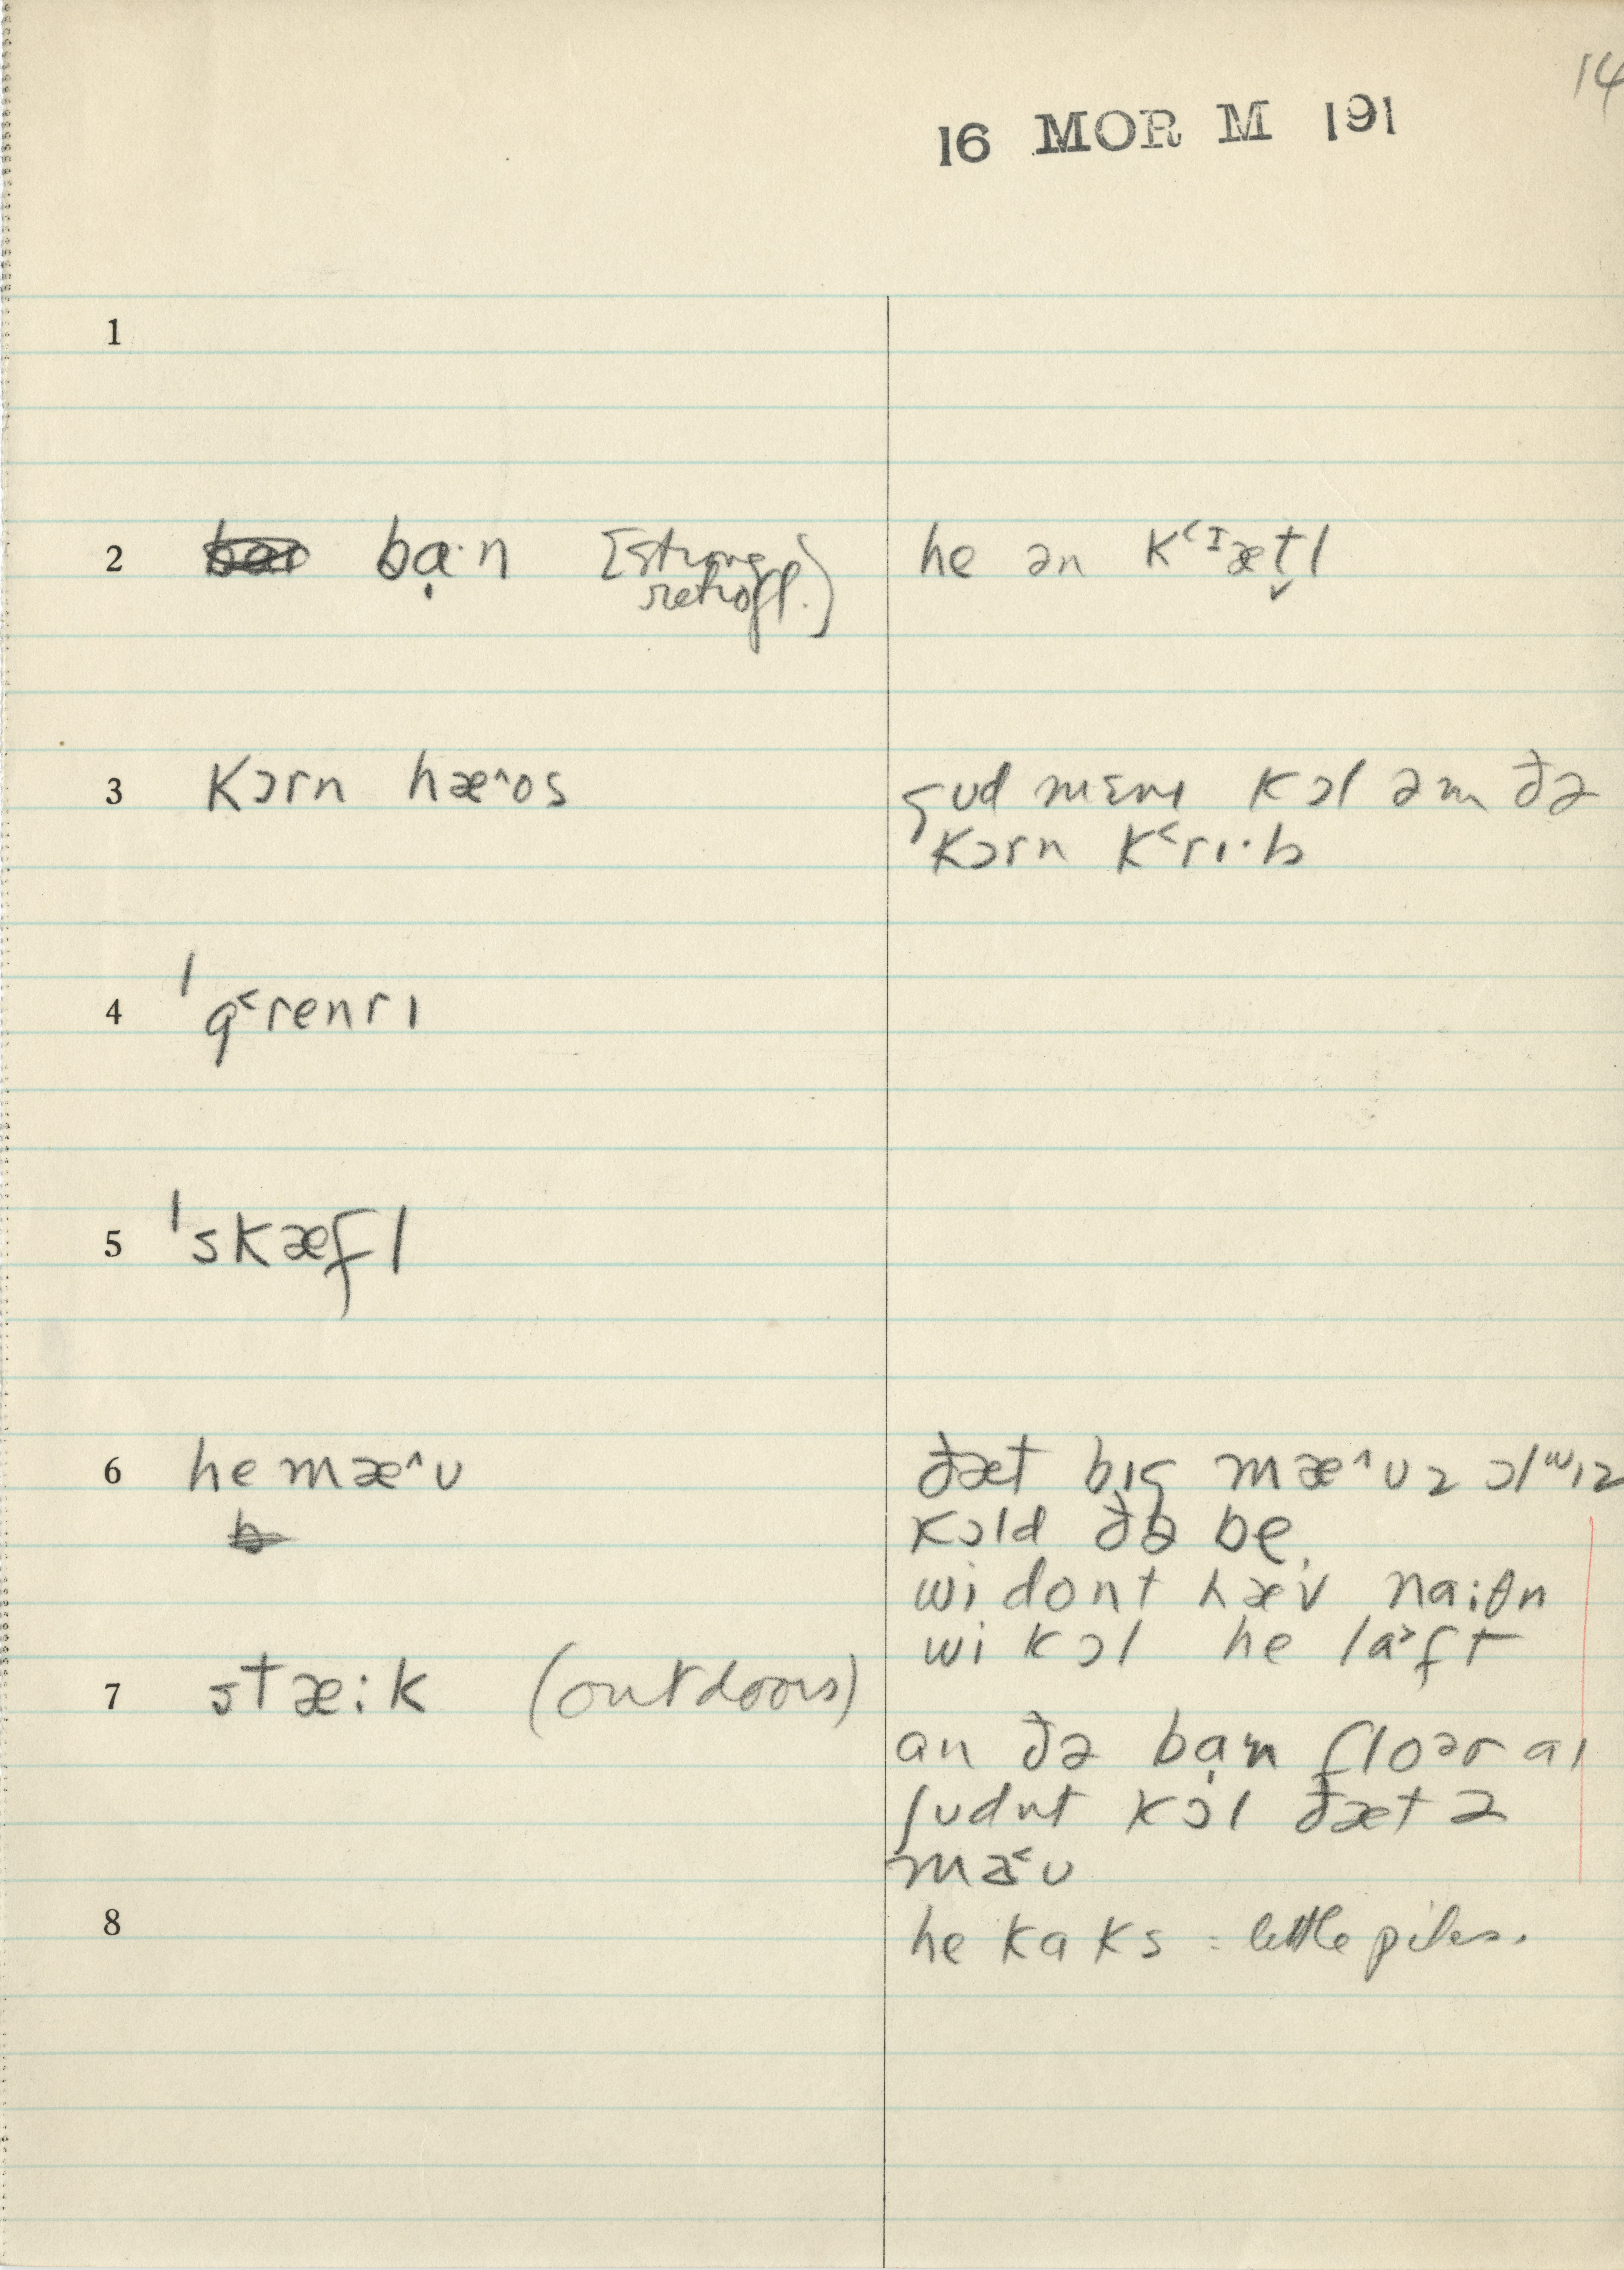 14
16 MOR M 191
1
2 bạ·n [strong
retrofl.]
he ən k˂ᴵæt̬l
3 kɔrn hæ^os
gud mɛnɪ kɔl əm ðə
kɔrn k˂rɪ·b
4 ˈg˂renrɪ
5 ˈskæfl
6 he mæ^ʊ
ðæt bɪg mæ^ʊz ɔlʷɪz
kɔld ðə be
wi dont hæv na:θn
wi kɔl he la˃ft
7 stæ:k (outdoors)
an ðə bạn floər aɪ
ʃʊdnt kɔl ðæt ə
mæ˂ʊ
8
he kaks = little piles.